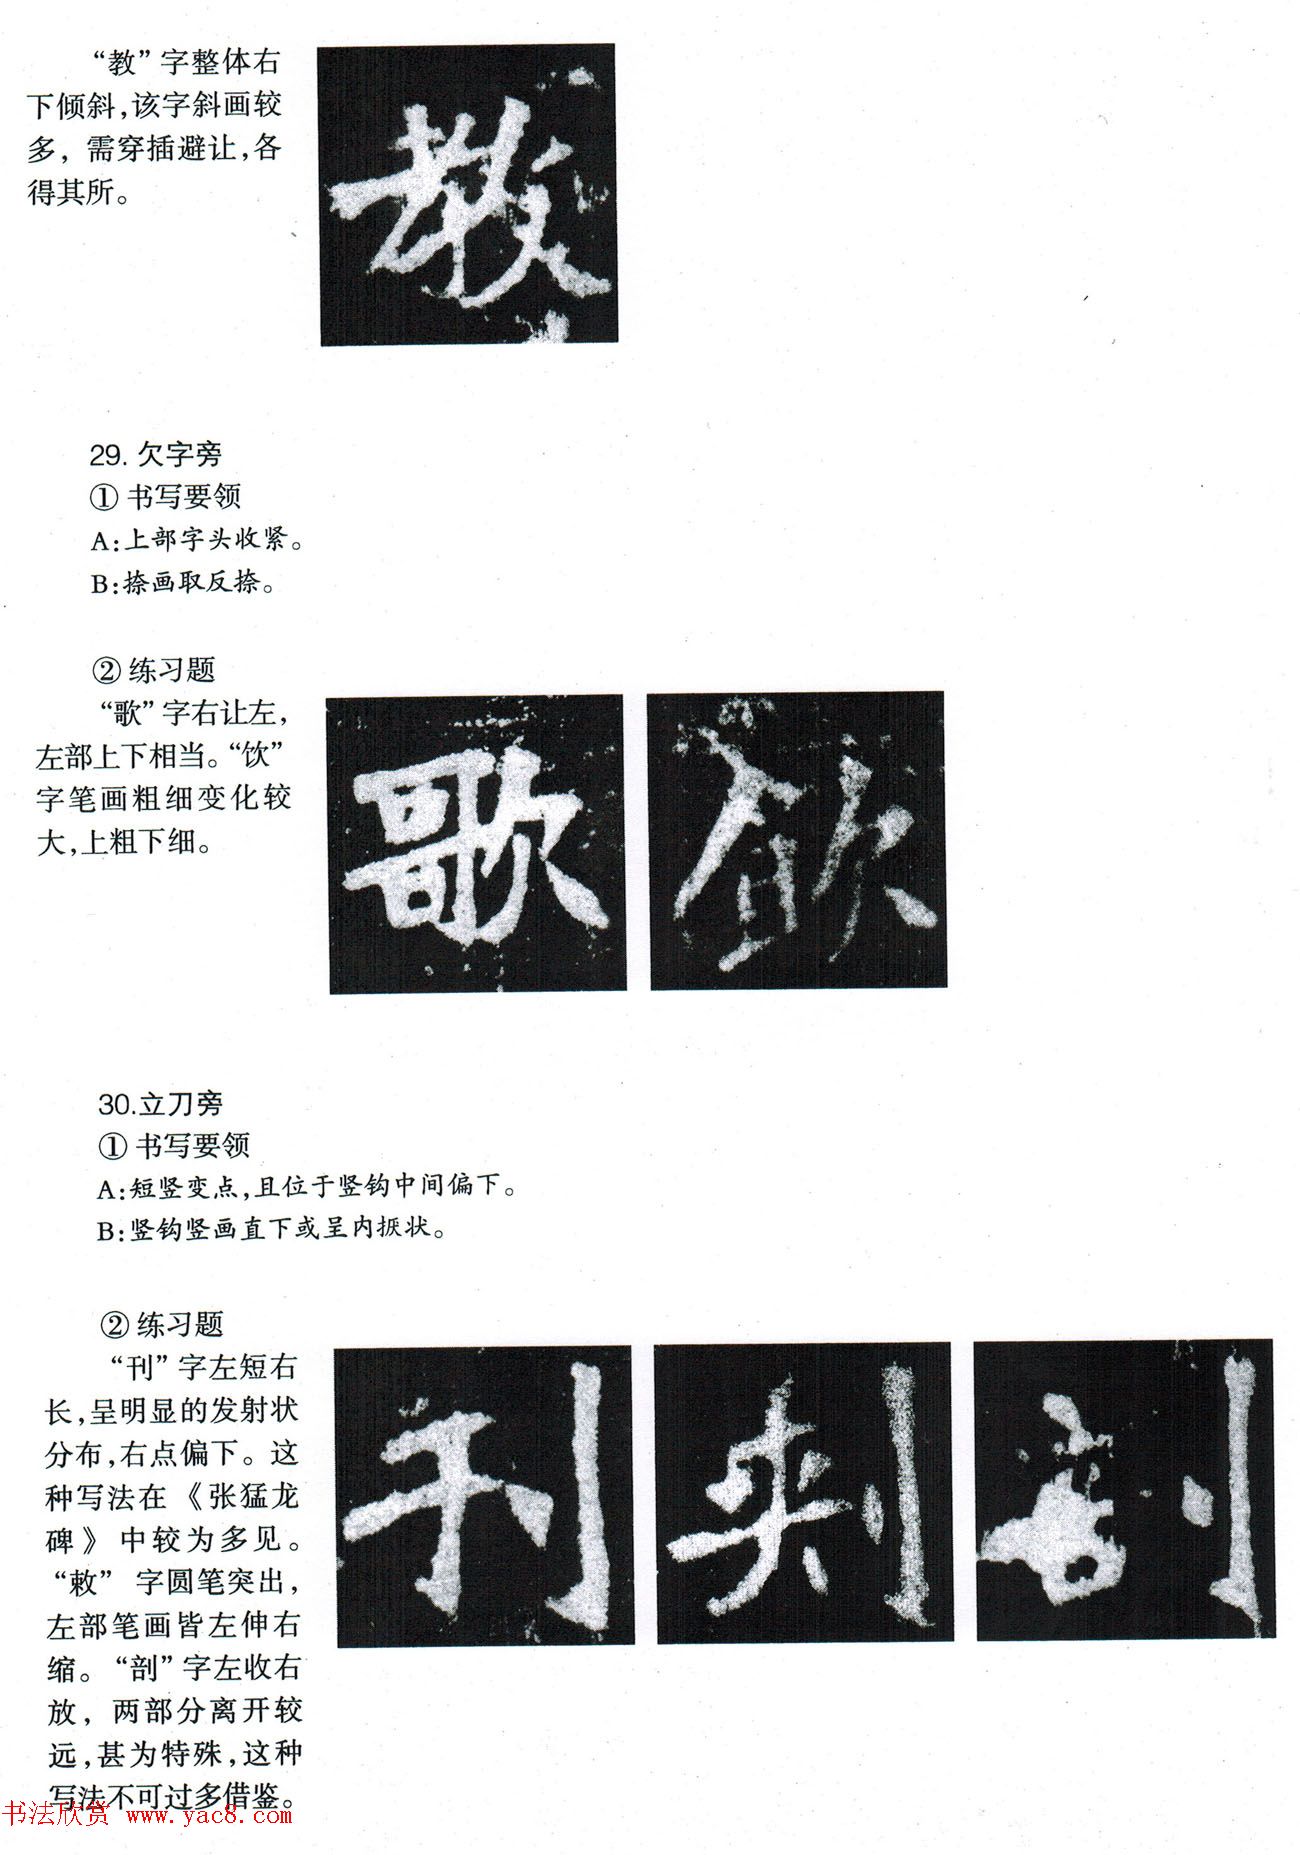 “教”字整体右
下倾斜,该字斜画较
多，需穿插避让,各
得其所。
教
29. 欠字旁
① 书写要领
A:上部字头收紧。
B:捺画取反捺。
② 练习题
“歌”字右让左,
左部上下相当。“饮”
字笔画粗细变化较
大,上粗下细。
歌
30.立刀旁
① 书写要领
A:短竖变点,且位于竖钩中间偏下。
B:竖钩竖画直下或呈内捩状。
② 练习题
“刊”字左短右
长,呈明显的发射状
分布,右点偏下。这
种写法在《张猛龙
碑》中较为多见。
“敕”字圆笔突出,
左部笔画皆左伸右
缩。“剖”字左收右
放，两部分离开较
远,甚为特殊,这种
写法不可过多借鉴。
刊 剖
书法欣赏 www.yac8.com